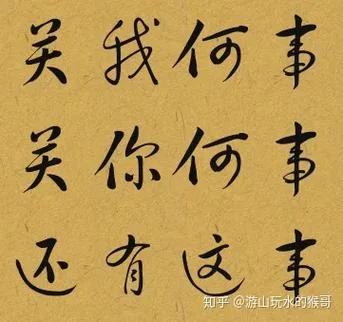 关我何事
关你何事
还有这事
知乎 @游山玩水的猴哥